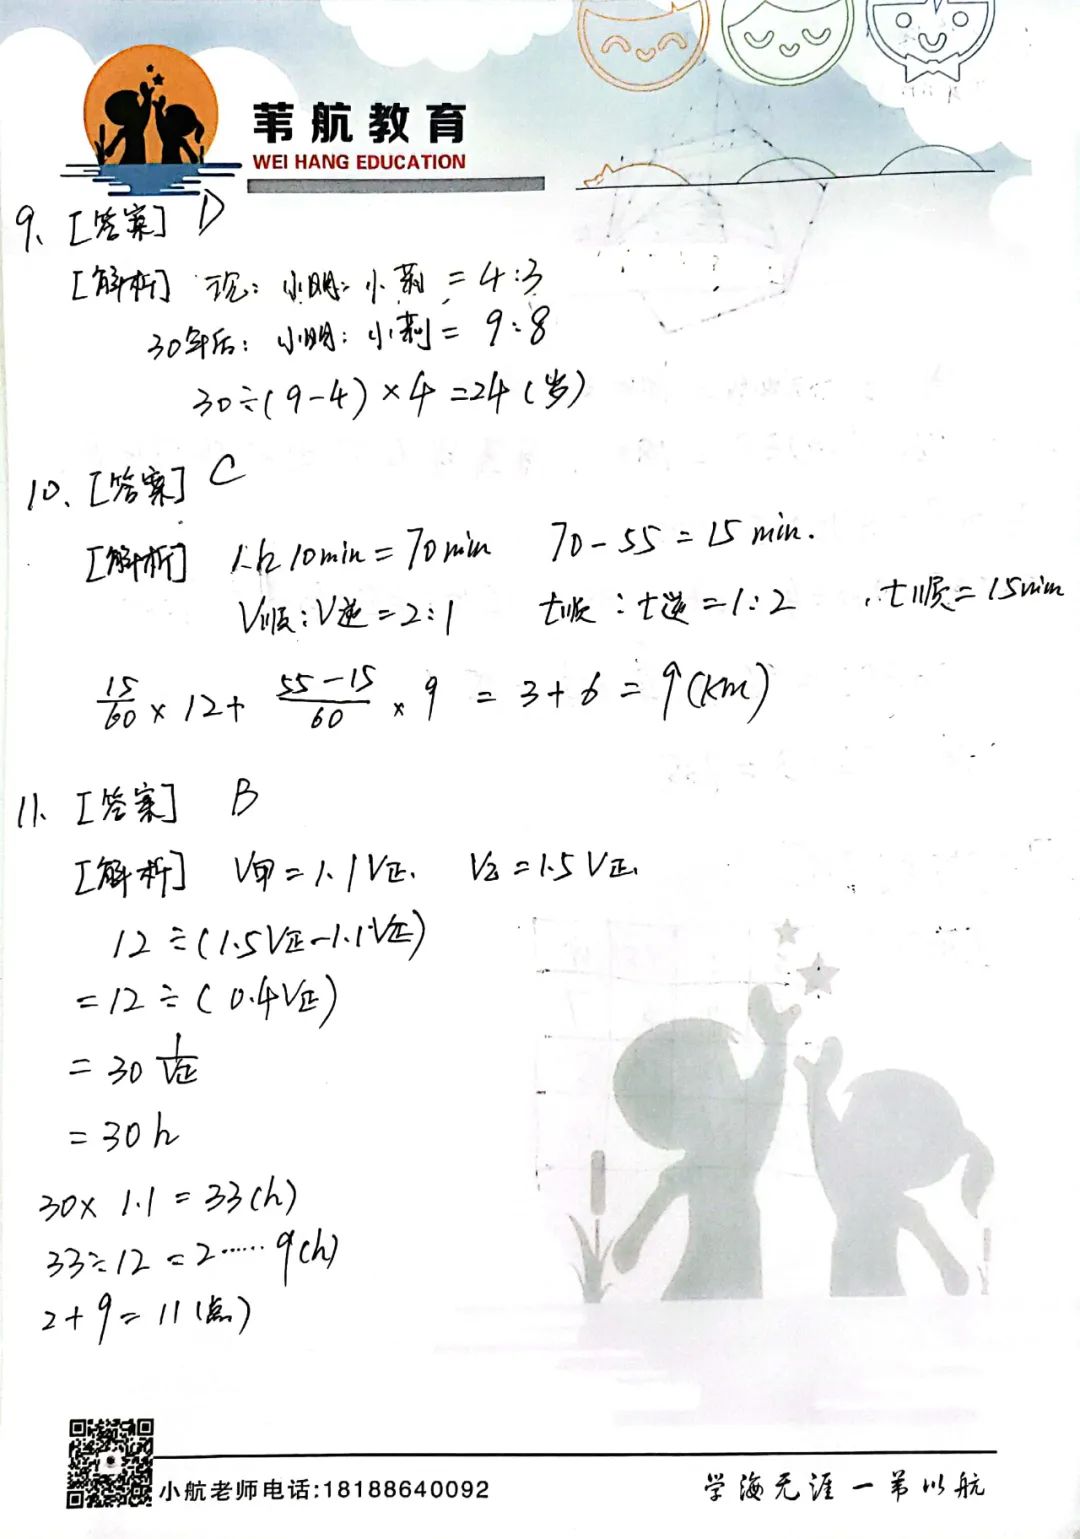 苇航教育
WEI HANG EDUCATION
9、[答案] D
[解析] 现：小明：小莉 = 4:3
30年后：小明：小莉 = 9:8
30÷(9-4)×4=24(岁)
10、[答案] C
[解析] 1h10min=70min 70-55=15min.
V顺:V逆=2:1 t顺:t逆=1:2 ,t顺=15min
15/60 × 12 + (55-15)/60 × 9 = 3+6 = 9(km)
11、[答案] B
[解析] V甲=1.1V正. V乙=1.5V正.
12÷(1.5V正-1.1V正)
=12÷(0.4V正)
=30 1/V正
=30h
30×1.1=33(h)
33÷12=2……9(h)
2+9=11(点)
小航老师电话:18188640092
学海无涯一苇以航